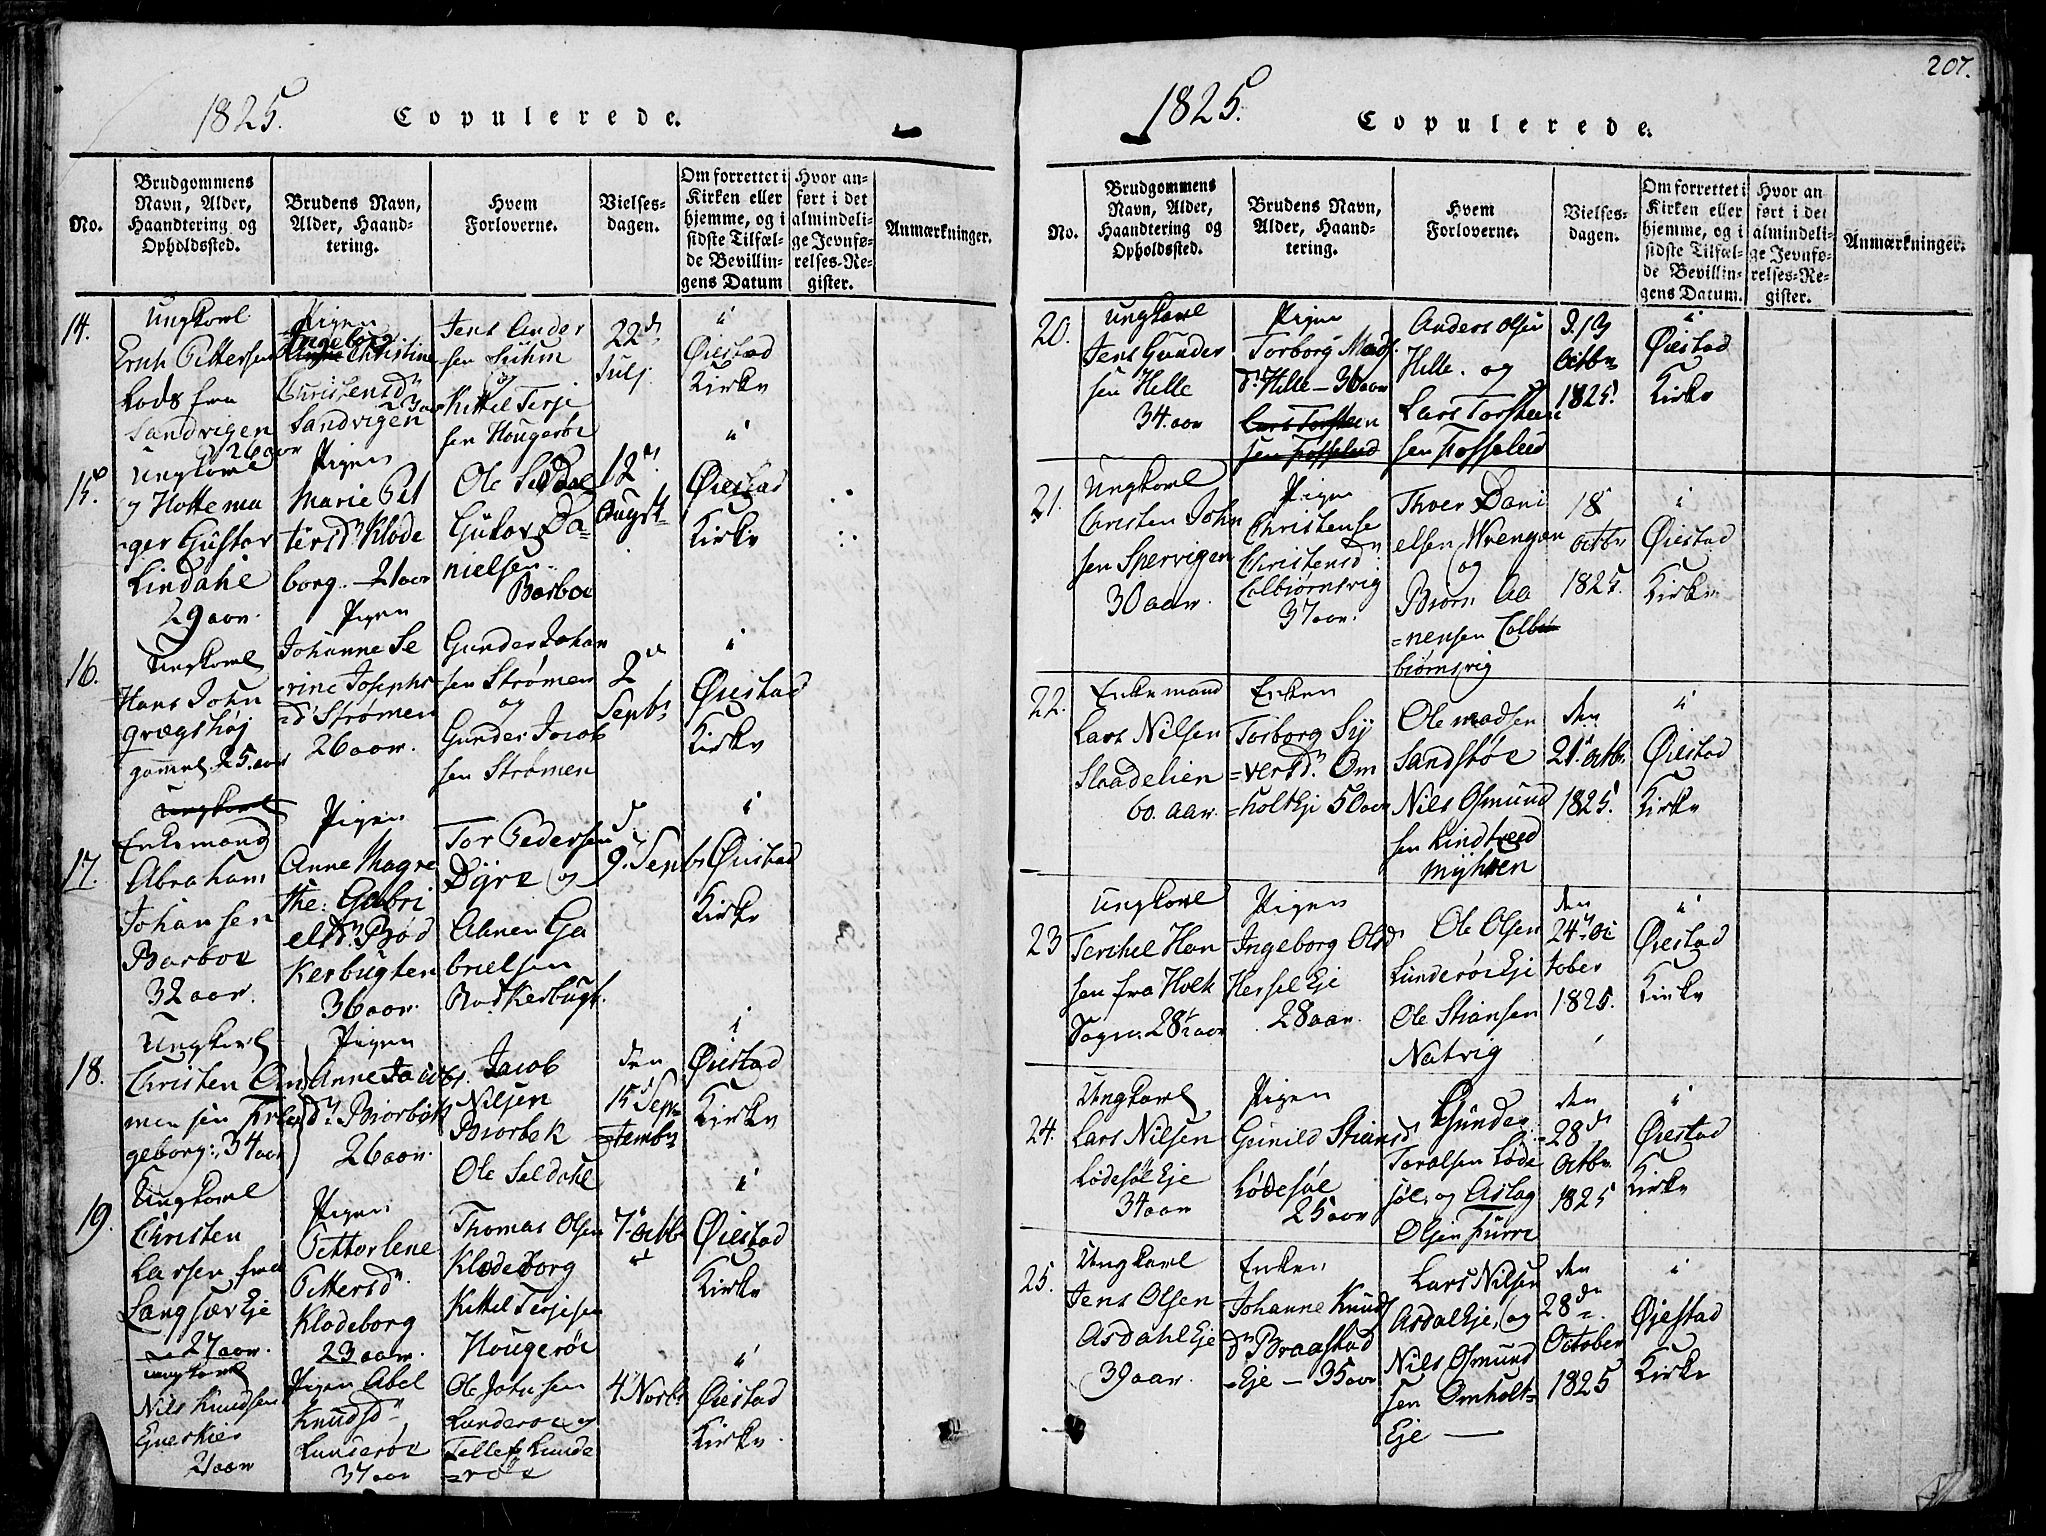 1825.
Copulerede.
No.
Brudgommens
Navn, Alder,
Haandtering og
Opholdssted.
Brudens Navn,
Alder, Haand-
tering.
Hvem
Forloverne.
Vielses-
dagen.
Om forrettet i
Kirken eller
hjemme, og i
sidste Tilfæl-
de Bevillin-
gens Datum
Hvor an-
ført i det
almindeli-
ge Jevnfø-
relses-Re-
gister.
Anmærkninger.
14.
Ungkarl
Erich Pettersen
Lods fra
Sandvigen
26 aar
Pigen
Ingeborg
Christine
Christensdr
Sandvigen
Jens Ander
sen Suhm
og
Kittel Terje
sen Hougerøe
22d
Julj.
i
Øiestad
Kirke
15.
Ungkarl
Gustav
Lindahl
29 aar.
Pigen
Marie Pet
tersdr Klode
borg. 21 aar
Ole Seldal
Gutov Da=
nielsen
Barboe
12
Augst.
i
Øiestad
Kirke
16.
Ungkarl
Hans John
gammel 25. aar
Pigen
Johanne Se
rine Josephs
=dr Strømen
26 aar.
Gunder Johan
sen Strømen
og
Gunder Jacob
sen Strømen
2
Septbr
i
Øiestad
Kirke
17.
Ungkarl
Enkemand
Abraham
Johansen
Barboe
32 aar.
Pigen
Anne Magre
the: Gabri
elsdr Rød
Kerbugten
36 aar.
Tor Pedersen
Dÿre og
Abnen Ga
brielsen
Rødkerbugt.
9. Septbr
i
Øiestad
Kirke
18.
Ungkarl
Christen Om
men sen
geborg:, 34 aar
Pigen
Anne Jacobs.
dr. Biorbek
26 aar.
Jacob
Nilsen
Biorbek
Ole Seldahl
den
15d Sep
=tembr
i
Øiestad
Kirke
19.
Ungkarl
Christen
Larsen fra
Langsær Eje
27 aar.
Pigen
Pitterlene
Pittersdr.
Klodeborg
23 aar.
Thomas Olsen
Klodeborg
Kittel Terjesen
Hougerøe
7. Octbr
i
Øiestad
Kirke
Ungkarl
Nils Knudsen
21 aar
Pigen Abel
Knudsdr
Lunderøe
37 aar
Ole Johnsen
Lunderøe og
Tellef Lunde
=røe
4. Novbr
i
Øiestad
Kirke
207.
1825.
Copulerede.
No.
Brudgommens
Navn, Alder,
Haandtering og
Opholdssted.
Brudens Navn,
Alder, Haand-
tering.
Hvem
Forloverne.
Vielses-
dagen.
Om forrettet i
Kirken eller
hjemme, og i
sidste Tilfæl-
de Bevillin-
gens Datum.
Hvor an
ført i det
almindeli-
ge Jevnfø-
relses-Re-
gister.
Anmærkninger.
20.
Ungkarl
Jens Gunder
sen Helle
34. aar
Pigen
Torborg Mads.
dr. Hille – 36 aar
Lars Torsteen
sen Fosselud
Anders Olsen
Hille. og
Lars Torsteen
sen Fosselud
Octbr
1825.
i
Øiestad
Kirke
21.
Ungkarl
Christen John
sen Spervigen
30 aar.
Pigen
Christense
Christensdr
Colbiørnsvig
37 aar.
Thoer Dani
elsen Wrengen
og
Biørn Aa
=nensen Colbi
biørnsvig
18
Octbr
1825.
i
Øiestad
Kirke
22.
Enkemand
Lars Nilsen
Slaadelien
60. aar.
Enken
Torborg Sÿ
=versdr. Om
=holt Eje 50 aar
Ole Madsen
Sandstøe
Nils Osmund
sen Lindtved
mÿhren
den
21. octbr.
1825.
i
Øiestad
Kirke
23
Ungkarl
Terchel Han
sen fra Holt
Sogn. 28½ aar
Pigen
Ingeborg Olsdr
Hessel Eje
28 aar.
Ole Olsen
Lunderøe Eje
Ole Stiansen
Natvig
den
24. Oc
tober
1825.
i
Øiestad
Kirke
24.
Ungkarl
Lars Nilsen
Lødesøl Eje
34 aar
Pigen
Gunild Stiansd
Lødesøl
25 aar
Gunder
Toralsen Løde
søl, og Aslag
Olsen Furre
den
28de
Octbr.
1825
i
Øiestad
Kirke
25.
Ungkarl
Jens Olsen
Asdahl Eje
39 aar.
Enken
Johanne Knuds
dr Braastad
=Eje – 35 aar
Lars Nilsen
Asdal Eje, og
Nils Osmund
sen Omholt=
Eje —
den
28de
October
1825
i
Øjestad
Kirke